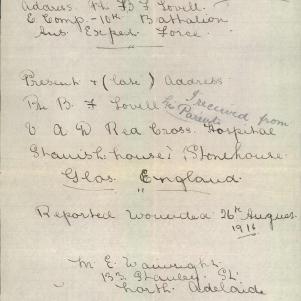 Address. Pte B F Lovell.
E Comp. - 10th Battalion
Aus. Exped. Force.
Present & (late) Address
Pte B. F Lovell
I received from
the Parents
V A D Red Cross. Hospital
Stanish house, Stonehouse
Glos. England.
Reported Wounded 26th August
1916
M. E. Wainwright
133 Stanley St.
North Adelaide